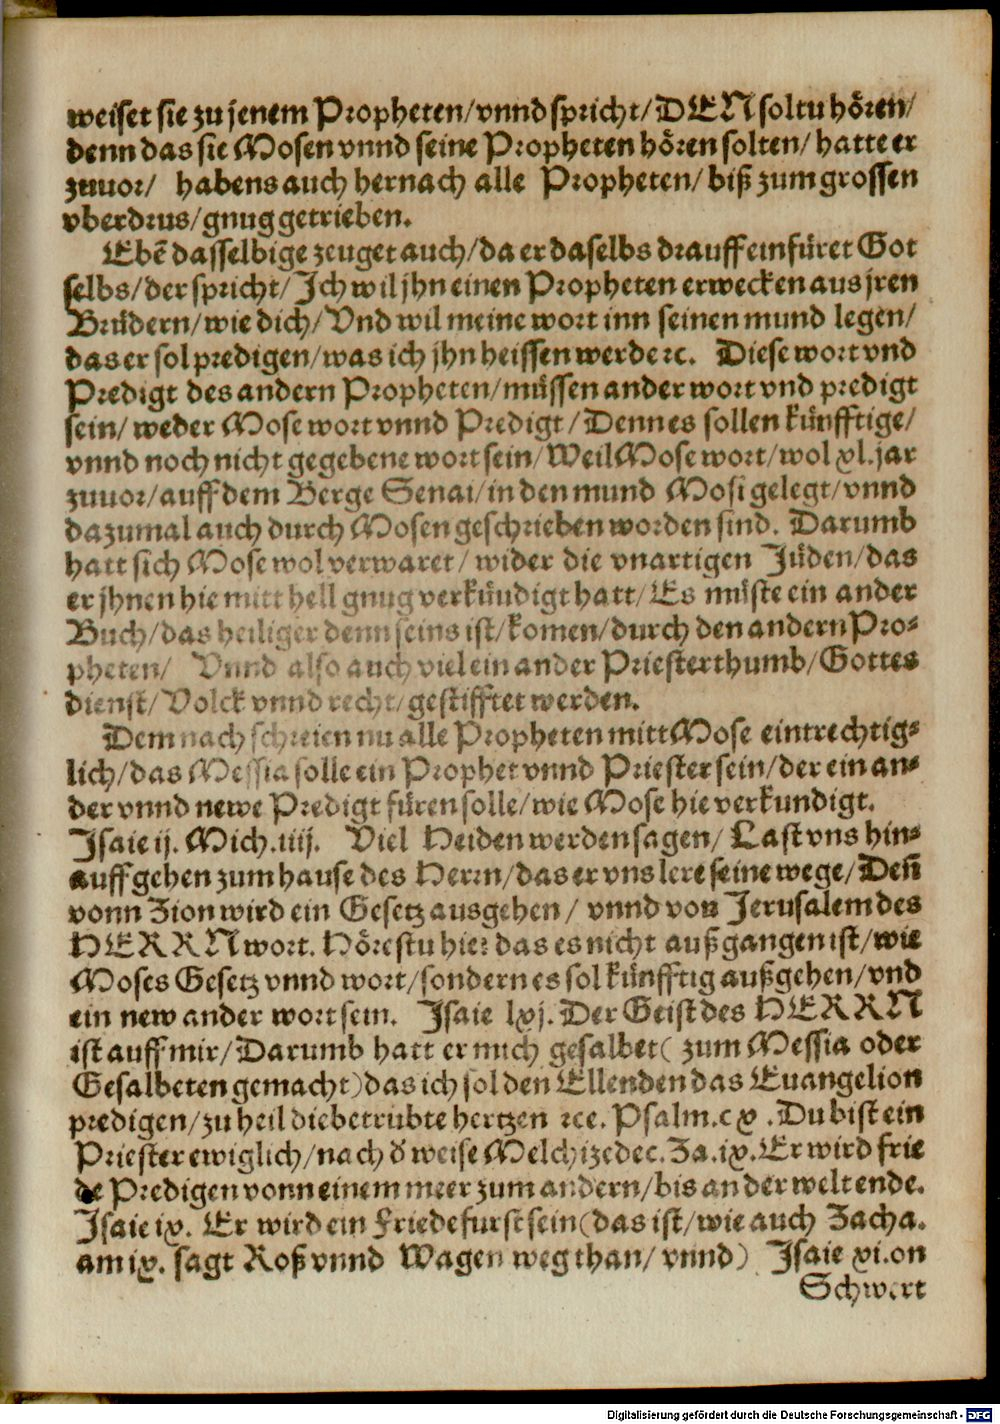 weiset sie zu jenem Propheten/vnnd spricht/DEN soltu hören/
denn das sie Mosen vnnd seine Propheten hören solten/hatte er
zuuor/ habens auch hernach alle Propheten/biß zum grossen
vberdrus/gnug getrieben.
Ebē dasselbige zeuget auch/da er daselbs drauff einfüret Got
selbs/der spricht/Ich wil jhn einen Propheten erwecken aus jren
Brüdern/wie dich/Vnd wil meine wort inn seinen mund legen/
das er sol predigen/was ich jhn heissen werde ꝛc. Diese wort vnd
Predigt des andern Propheten/müssen ander wort vnd predigt
sein/weder Mose wort vnnd Predigt/Denn es sollen künfftige/
vnnd noch nicht gegebene wort sein/Weil Mose wort/wol xl.jar
zuuor/auff dem Berge Senai/in den mund Mosi gelegt/vnnd
dazumal auch durch Mosen geschrieben worden sind. Darumb
hatt sich Mose wol verwaret/ wider die vnartigen Jüden/das
er jhnen hie mitt hell gnug verkündigt hatt/Es müste ein ander
Buch/das heiliger denn seins ist/komen/durch den andern Pro⸗
pheten/ Vnnd also auch viel ein ander Priesterthumb/Gottes
dienst/Volck vnnd recht/gestifftet werden.
Dem nach schreien nu alle Propheten mitt Mose eintrechtig⸗
lich/das Messia solle ein Prophet vnnd Priester sein/der ein an⸗
der vnnd newe Predigt füren solle/wie Mose hie verkundigt.
Isaie ij. Mich.iiij. Viel Heiden werden sagen/ Last vns hin⸗
auff gehen zum hause des Herrn/das er vns lere seine wege/Deñ
vonn Zion wird ein Gesetz ausgehen/ vnnd von Jerusalem des
HERRN wort. Hörestu hie? das es nicht außgangen ist/wie
Moses Gesetz vnnd wort/sondern es sol künfftig außgehen/vnd
ein new ander wort sein. Isaie lxj. Der Geist des HERRN
ist auff mir/Darumb hatt er mich gesalbet( zum Messia oder
Gesalbeten gemacht)das ich sol den Ellenden das Euangelion
predigen/zu heil die betrubte hertzen ꝛce. Psalm.cx. Du bist ein
Priester ewiglich/nach d̕ weise Melchizedec. Za.ix. Er wird frie
de Predigen vonn einem meer zum andern/bis an der welt ende.
Isaie ix. Er wird ein Friedefurst sein(das ist/wie auch Zacha.
am ix. sagt Roß vnnd Wagen weg than/ vnnd) Isaie xi.on
Schwert
Digitalisierung gefördert durch die Deutsche Forschungsgemeinschaft - DFG